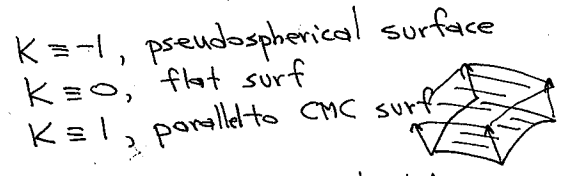 K ≡ -1, pseudospherical surface
K ≡ 0, flat surf
K ≡ 1, parallel to CMC surf